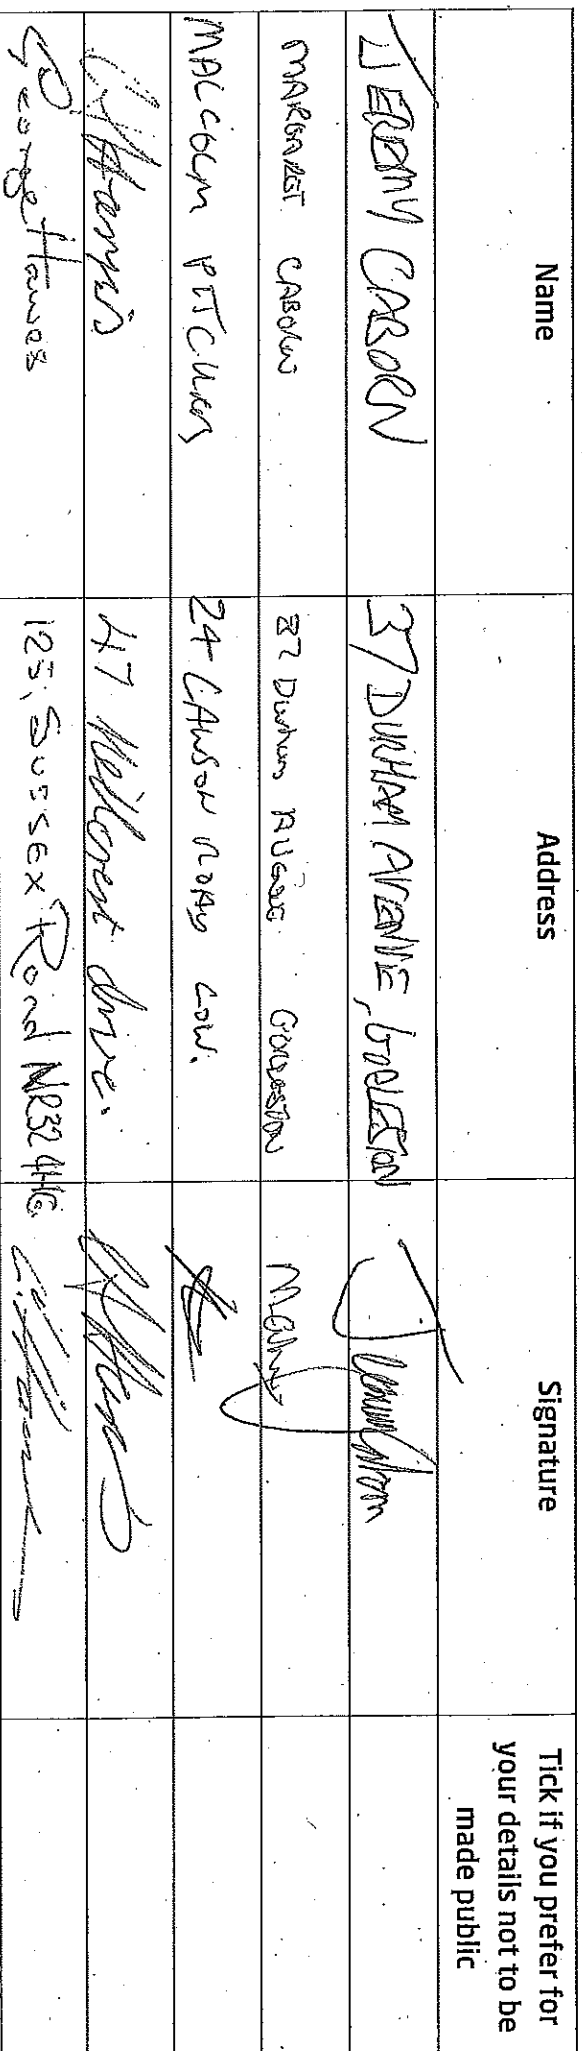 Name Address Signature Tick if you prefer for
your details not to be
made public
JEREMY CABORN 37 DURHAM AVENUE, GORLESTON
MARGARET CABORN 37 Durham AVENUE GORLESTON
MALCOLM PITCHERS 24 LAWSON ROAD LOW.
Harris 47 Hillcrest drive.
George Hawes 123, SUSSEX Road NR32 4HG